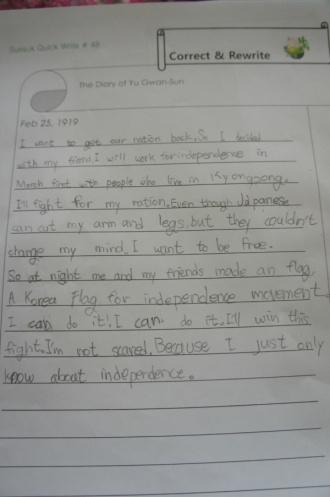 Quick Write # 48
Correct & Rewrite
The Diary of Yu Gwan-Sun
Feb 25, 1919
I want to get our nation back. So I decided
with my friend. I will work for independence in
March first with people who live in Kyongsong.
I'll fight for my nation. Even though Japanese
can cut my arm and legs. but they couldn't
change my mind. I want to be free.
So at night me and my friends made an flag.
A Korea Flag for independence movement.
I can do it! I can do it. I'll win this
fight. I'm not scared. Because I just only
know about independence.